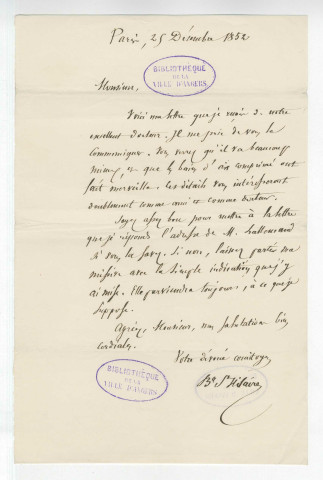 Paris, 25 Décembre 1852
BIBLIOTHÈQUE
DE LA
VILLE D'ANGERS
Monsieur,
Voici une lettre que je reçois de notre
excellent docteur. Il me prie de vous la
Communiquer. Vous verrez qu'il va beaucoup
mieux, et que les bains d'air comprimé ont
fait merveille. Ces détails vous intéresseront
doublement comme ami et comme docteur.
Soyez assez bon pour mettre à la lettre
que je réponds l'adresse de M. Lallemand
si vous la savez. Si non, laissez partir ma
missive avec la simple indication que j'y
ai mise. Elle parviendra toujours, à ce que je
suppose.
Agréez, Monsieur, mes salutations bien
cordiales.
Votre dévoué concitoyen,
BIBLIOTHÈQUE
DE LA
VILLE D'ANGERS
By St Hilaire